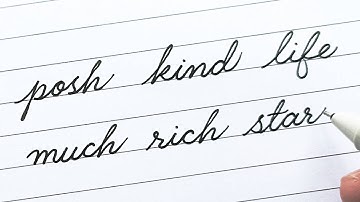 posh kind life
much rich star